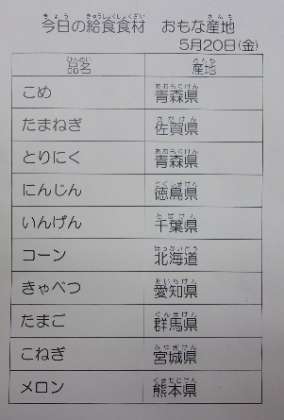 今日の給食食材 おもな産地
5月20日(金)
品名 産地
こめ 青森県
たまねぎ 佐賀県
とりにく 青森県
にんじん 徳島県
いんげん 千葉県
コーン 北海道
きゃべつ 愛知県
たまご 群馬県
こねぎ 宮城県
メロン 熊本県